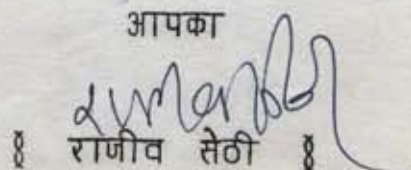 आपका
राजीव सेठी